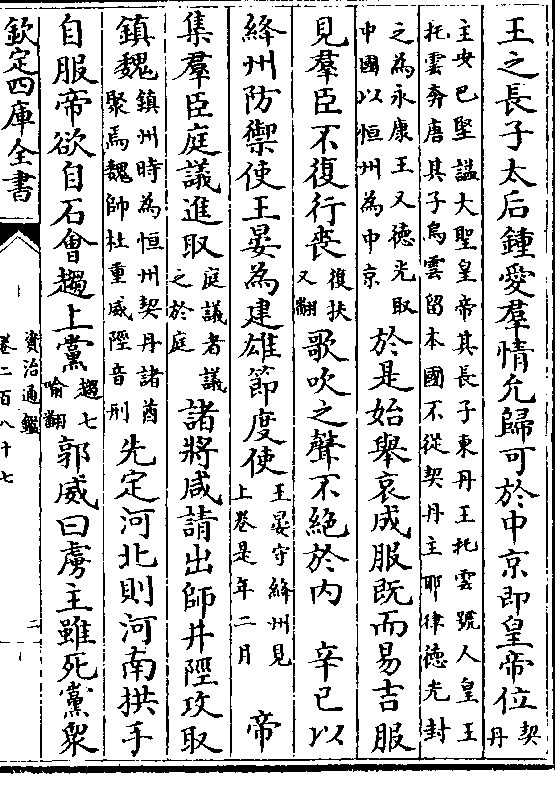 王之長子太后鍾愛羣情允歸可於中京即皇帝位契丹
主安巴堅謚大聖皇帝其長子東丹王托雲號人皇王
托雲奔唐其子烏雲留本國不從契丹主耶律德光封
之為永康王又德光取中國以恒州為中京於是始舉哀成服既而易吉服
見羣臣不復行喪復扶又翻歌吹之聲不絕於內 辛巳以
絳州防禦使王晏為建雄節度使王晏守絳州見上卷是年二月 帝
集羣臣庭議進取庭議者議之於庭諸將咸請出師井陘攻取
鎮魏鎮州時為恒州契丹諸酋聚焉魏帥杜重威陘音刑先定河北則河南拱手
自服帝欲自石會趨上黨趨七喻翻郭威曰虜主雖死黨衆
欽定四庫全書
資治通鑑
卷二百八十七
二